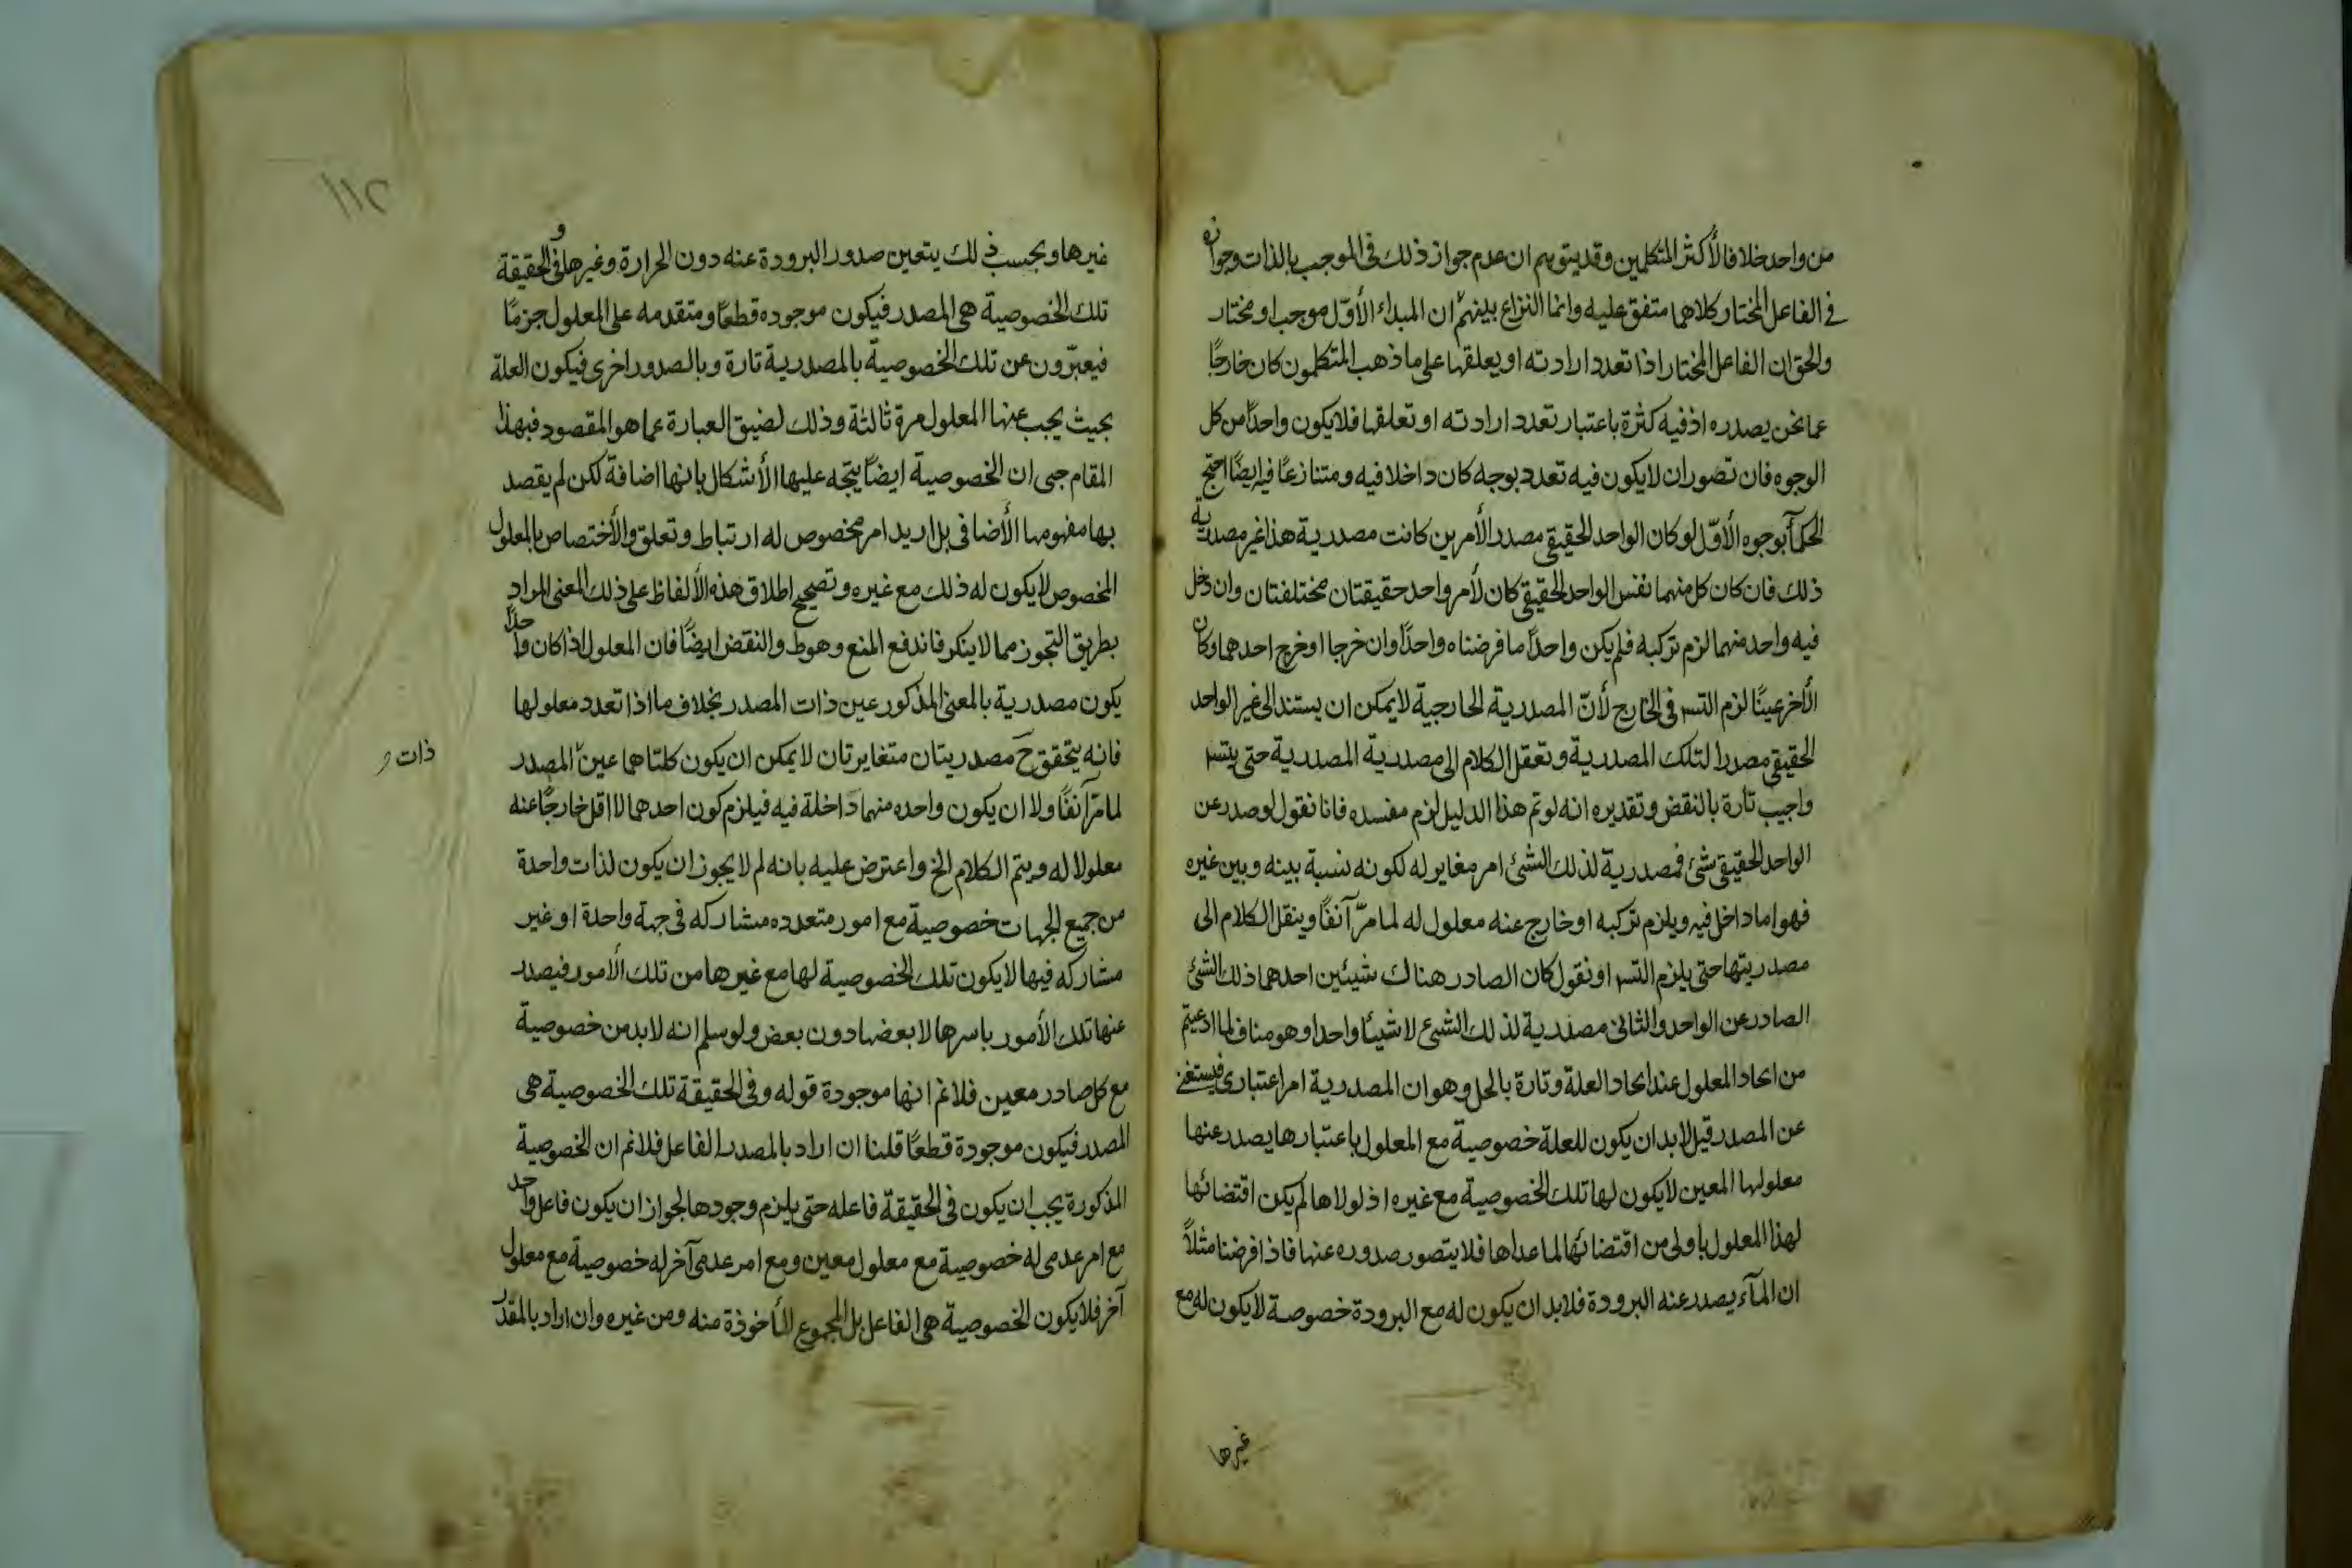 من واحد خلافا لأكثر المتكلمين وقد يتوهم ان عدم جواز ذلك فى الموجب بالذات وجوازه
فى الفاعل المختار كلاهما متفق عليه وانما النزاع بينهم ان المبداء الأوّل موجب او مختار
والحق ان الفاعل المختار اذا تعدد ارادته او يعلقها على ما ذهب المتكلمون كان خارجًا
عما نحن بصدره اذ فيه كثرة باعتبار تعدد ارادته او تعلقها فلا يكون واحدًا من كل
الوجوه فان تصور ان لا يكون فيه تعدد بوجه كان داخلا فيه ومتنازعًا فيه ايضًا احتج
الحكمآء بوجوه الأوّل لو كان الواحد الحقيقى مصدر الأمرين كانت مصدرية هذا غير مصدرية
ذلك فان كان كل منهما نفس الواحد الحقيقى كان لأمر واحد حقيقتان مختلفتان وان دخل
فيه واحد منهما لزم تركبه فلم يكن واحدًا ما فرضناه واحدًا وان خرجا او خرج احدهما وكان
الأخر عينًا لزم التسـ فى الخارج لأنّ المصدرية الخارجية لا يمكن ان يستند الى غير الواحد
الحقيقى مصدرا لتلك المصدرية وتعقل الكلام الى مصدرية المصدرية حتى يتسـ
واجيب تارة بالنقض وتقديره انه لو تم هذا الدليل لزم مفسده فانا نقول لو صدر عن
الواحد الحقيقى شئ فمصدرية لذلك الشئ امر مغاير له لكونه نسبة بينه وبين غيره
فهو اما داخل فيه ويلزم تركبه او خارج عنه معلول له لما مرّ آنفًا وينقل الكلام الى
مصدريتها حتى يلزم التسـ او نقول كان الصادر هناك شيئين احدهما ذلك الشئ
الصادر عن الواحد والثانى مصدرية لذلك الشئ لا شيئا واحدا وهو مناف لما ادعيتم
من اتحاد المعلول عند اتحاد العلة وتارة بالحل وهو ان المصدرية امر اعتبارى فيستغنى
عن المصدر قيل لابد ان يكون للعلة خصوصية مع المعلول باعتبارها يصدر عنها
معلولها المعين لا يكون لها تلك الخصوصية مع غيره اذ لولاها لم يكن اقتضائها
لهذا المعلول باولى من اقتضائها لما عداها فلا يتصور صدوره عنها فاذا فرضنا مثلاً
ان المآء يصدر عنه البرودة فلا بد ان يكون له مع البرودة خصوصة لا يكون له مع
غيرها
١١٢
غيرها وبحسب ذلك يتعين صدور البرودة عنه دون الحرارة وغيرها وفى الحقيقة
تلك الخصوصية هى المصدر فيكون موجوده قطعًا ومتقدمه على المعلول جزمًا
فيعبّرون عن تلك الخصوصية بالمصدرية تارة وبالصدور اخرى فيكون العلة
بحيث يجب عنها المعلول مرة ثالثة وذلك لضيق العبارة عما هو المقصود فبهذا
المقام حتى ان الخصوصية ايضًا يتجه عليها الأشكال بانها اضافة لكن لم يقصد
بها مفهومها الأضافى بل اريد امر مخصوص له ارتباط وتعلق والأختصاص بالمعلول
المخصوص لا يكون له ذلك مع غيره وتصحيح اطلاق هذه الألفاظ على ذلك المعنى المراد
بطريق التجوز مما لا ينكر فاندفع المنع وهوط والنقض ايضًا فان المعلول اذا كان واحدًا
يكون مصدرية بالمعنى المذكور عين ذات المصدر بخلاف ما اذا تعدد معلولها
فانه يتحقق ح مصدريتان متغايرتان لا يمكن ان يكون كلتاهما عين المصدر
ذات
لما مرّ آنفًا ولا ان يكون واحده منهما داخلة فيه فيلزم كون احدهما لا اقل خارجًا عنه
معلولا له ويتم الكلام الخ واعترض عليه بانه لم لا يجوز ان يكون لذات واحدة
من جميع الجهات خصوصية مع امور متعدده مشاركه فى جهة واحدة او غير
مشاركه فيها لا يكون تلك الخصوصية لها مع غيرها من تلك الأمور فيصدر
عنها تلك الأمور باسرها لا بعضها دون بعض ولو سلم انه لابد من خصوصية
مع كل صادر معين فلا نم انها موجودة قوله وفى الحقيقة تلك الخصوصية هى
المصدر فيكون موجودة قطعًا قلنا ان اراد بالمصدر الفاعل فلا نم ان الخصوصية
المذكورة يجب ان يكون فى الحقيقة فاعله حتى يلزم وجودها لجواز ان يكون فاعل واحد
مع امر عدمى له خصوصية مع معلول معين ومع امر عدمى آخر له خصوصية مع معلول
آخر فلا يكون الخصوصية هى الفاعل بل المجموع المأخوذة منه ومن غيره وان اراد بالمقدر